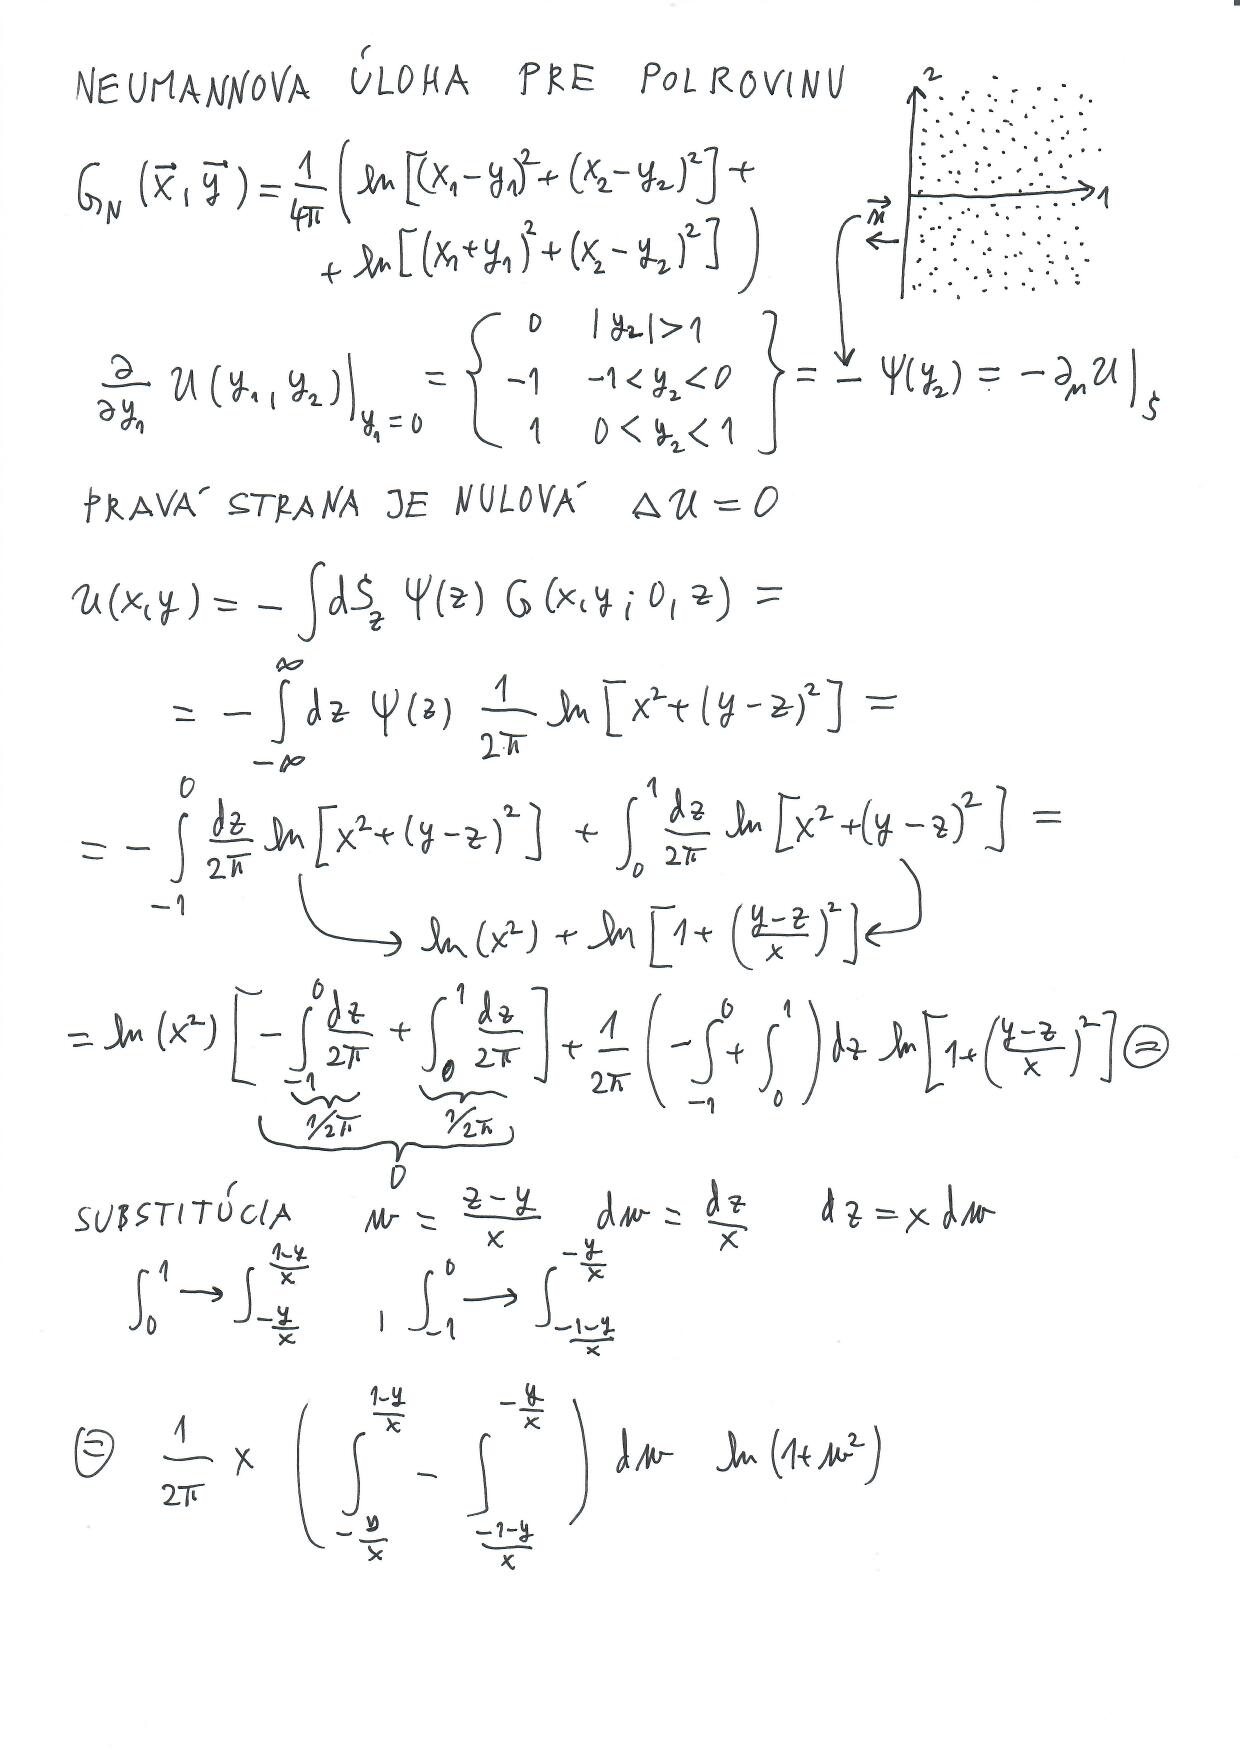 NEUMANNOVA ÚLOHA PRE POLROVINU
2
1
n⃗
G_N (x⃗, y⃗) = 1/4π ( ln [(x₁-y₁)² + (x₂-y₂)²] +
+ ln [(x₁+y₁)² + (x₂-y₂)²] )
∂/∂y₁ u(y₁, y₂)|_{y₁=0} = { 0 |y₂|>1 ; -1 -1<y₂<0 ; 1 0<y₂<1 } = - Ψ(y₂) = - ∂ₙu|_S
PRAVÁ STRANA JE NULOVÁ Δu = 0
u(x,y) = - ∫dS_z Ψ(z) G(x,y; 0, z) =
= - ∫_{-∞}^{∞} dz Ψ(z) 1/2π ln [x² + (y-z)²] =
= - ∫_{-1}^{0} dz/2π ln [x² + (y-z)²] + ∫_0^1 dz/2π ln [x² + (y-z)²] =
ln (x²) + ln [1 + ((y-z)/x)²]
= ln (x²) [ - ∫_{-1}^{0} dz/2π + ∫_0^1 dz/2π ] + 1/2π ( - ∫_{-1}^{0} + ∫_0^1 ) dz ln [1 + ((y-z)/x)²] ⊜
1/2π 1/2π
0
SUBSTITÚCIA w = (z-y)/x dw = dz/x dz = x dw
∫_0^1 → ∫_{-y/x}^{(1-y)/x} , ∫_{-1}^{0} → ∫_{(-1-y)/x}^{-y/x}
⊜ 1/2π x ( ∫_{-y/x}^{(1-y)/x} - ∫_{(-1-y)/x}^{-y/x} ) dw ln (1+w²)